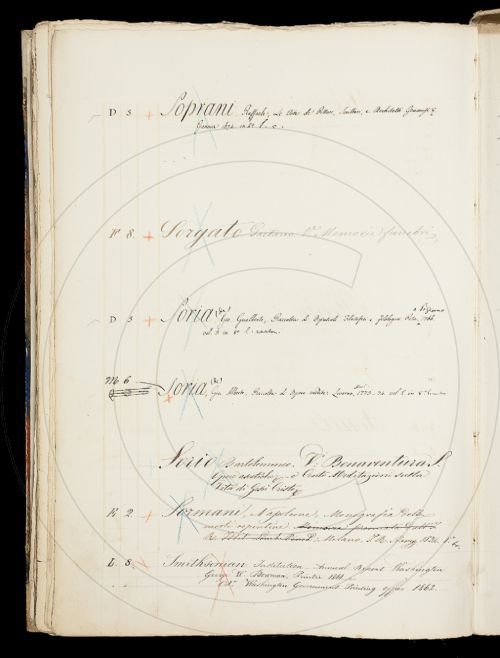 D 3 + Soprani Raffaele, Le Vite de Pittori, Scultori, e Architetti Genovesi &
Genova 1674 in
F 8. + Sorgato Gaetano, Memorie funebri,
D 3 + Soria Gio. Gualberto, Raccolta di Opuscoli Filosofici, e Filologici Pisa, 1766
vol. 3 in 8°
M 6
Soria Gio. Alberto, Raccolta di Opere inedite. Livorno, 1773-74 vol. 2 in 8°
Sorio Bartolommeo, V. Bonaventura S.
Opere ascetiche, o Cento Meditazioni sulla
Vita di Gesù Cristo
K 2. Sormani, Napoleone, Monografia delle
morti repentine
Milano,
L. 8. Smithsonian Institution - Annual Report Washington
George W. Bowman, Printer 1861
Washington Government Printing office 1862.